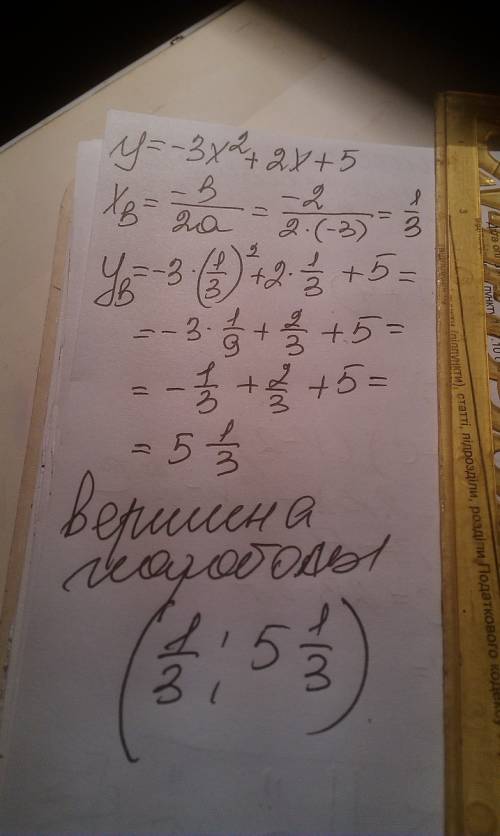 y = -3x² + 2x + 5
x_B = -b/2a = -2/(2·(-3)) = 1/3
y_B = -3·(1/3)² + 2·1/3 + 5 =
= -3·1/9 + 2/3 + 5 =
= -1/3 + 2/3 + 5 =
= 5 1/3
вершина
параболы
(1/3; 5 1/3)
(підпункти), статті, підрозділи, розділи Податкового